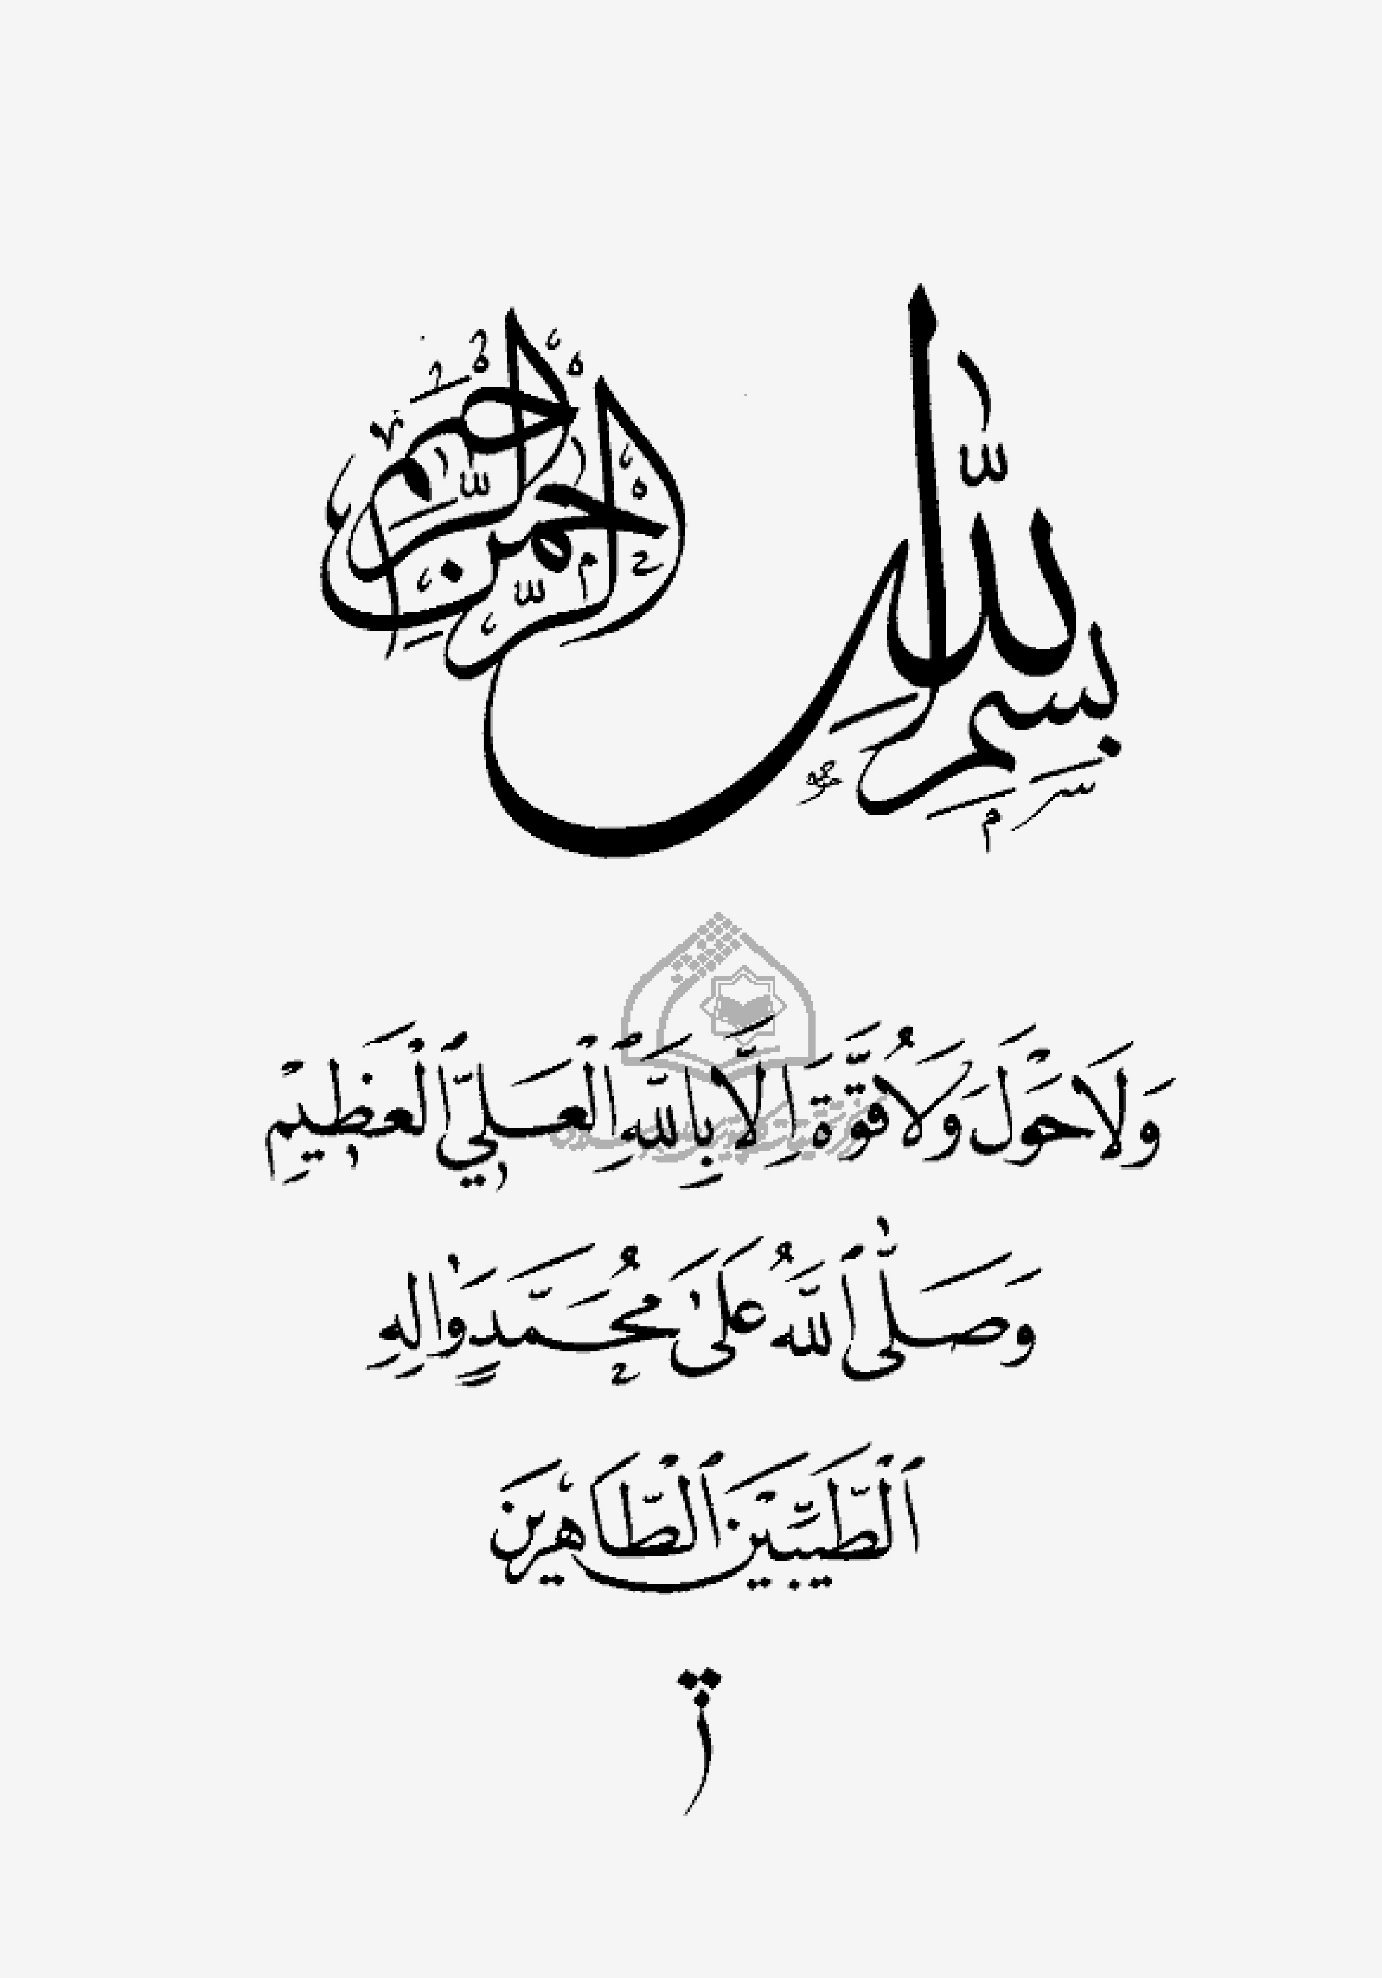 بِسْمِ اللّٰهِ الرَّحْمٰنِ الرَّحِيمِ
وَلَا حَوْلَ وَلَا قُوَّةَ اِلَّا بِاللّٰهِ ٱلْعَلِيِّ ٱلْعَظِيْمِ
وَصَلَّى ٱللّٰهُ عَلىٰ مُحَمَّدٍ وَاٰلِهِ
ٱلْطَّيِّبِيْنَ ٱلْطَّاهِرِينَ